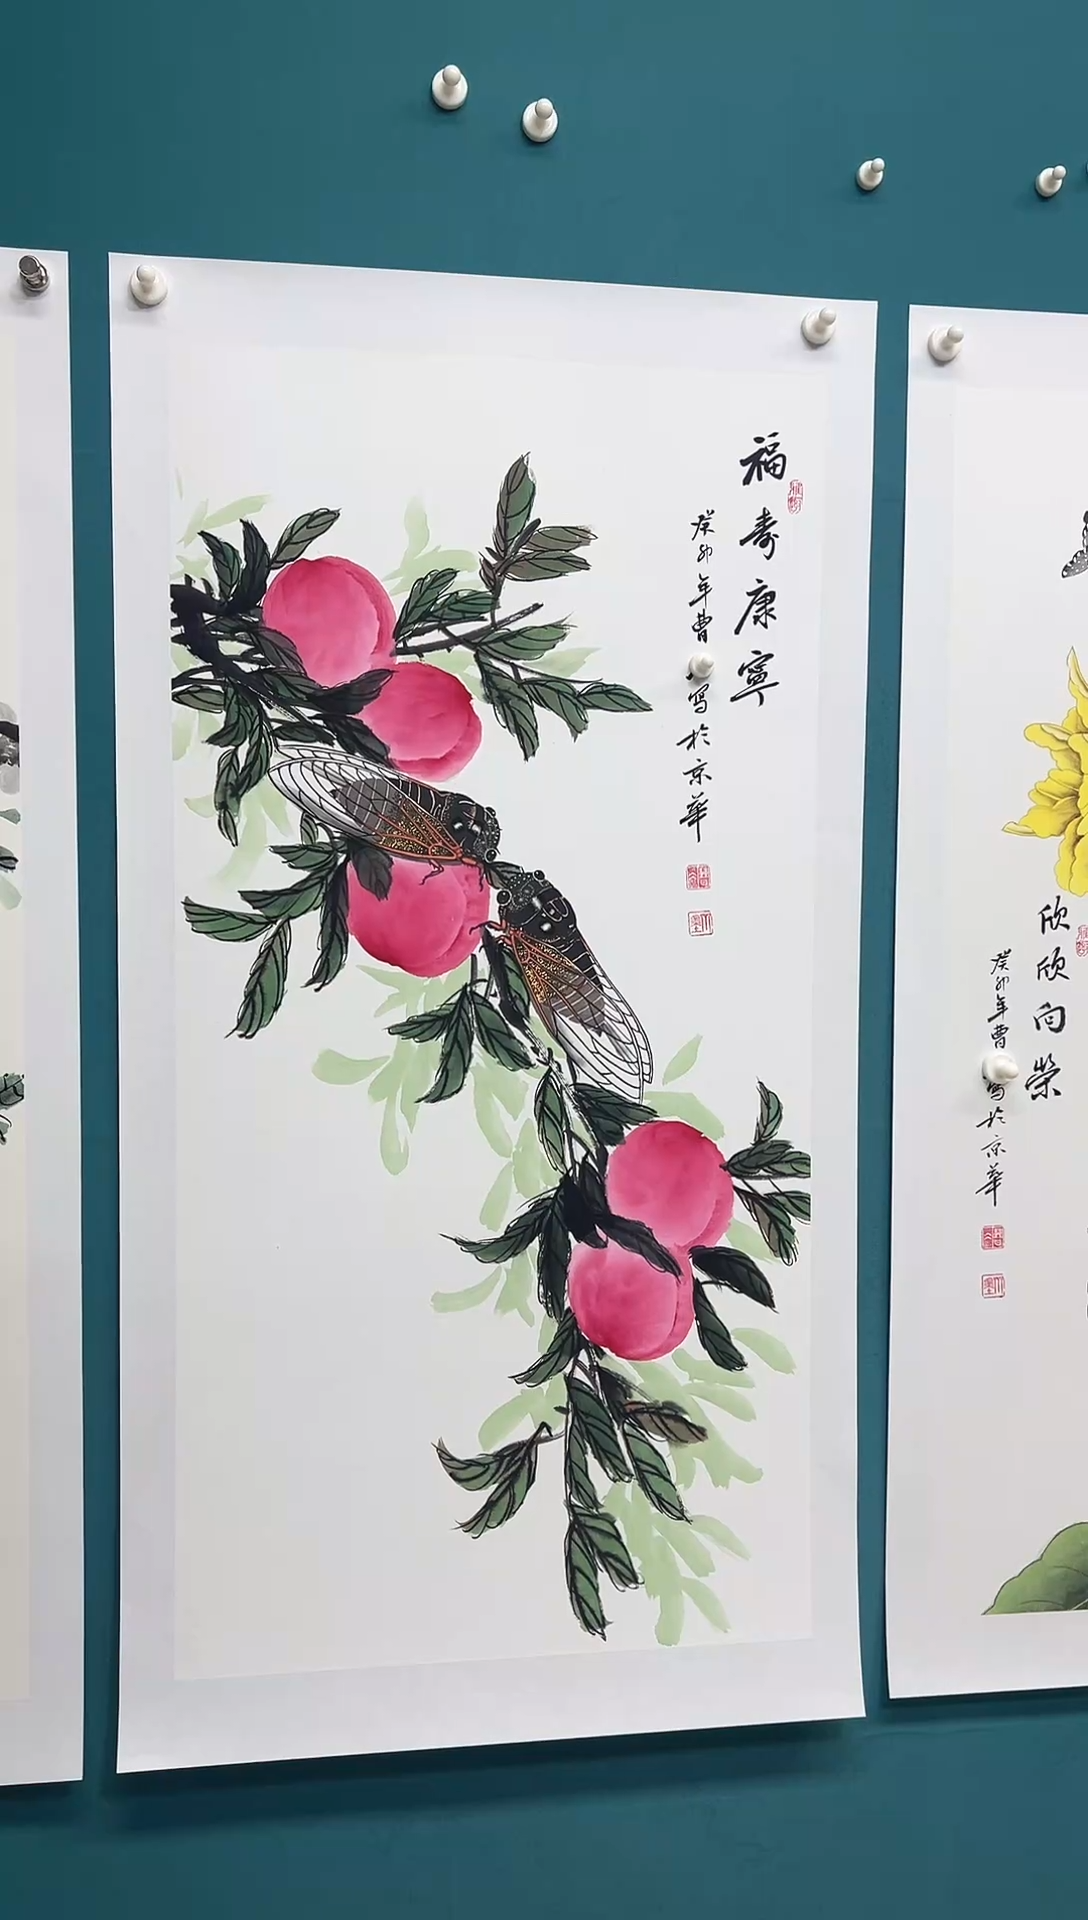 福寿康寧
癸卯年曹
写於京華
欣欣向荣
癸卯年曹
写於京華